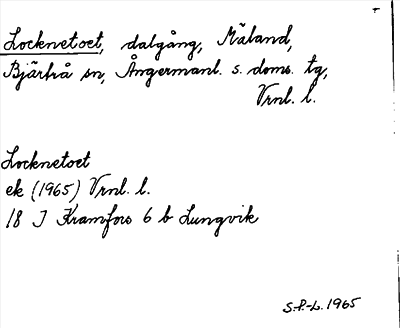 Locknetoet, dalgång, Mäland,
Bjärtrå sn, Ångermanl. s. doms. tg,
Vrnl. l.
Locknetoet
ek (1965) Vrnl. l.
18 J Kramfors 6 b Lungvik
S.P.-L. 1965